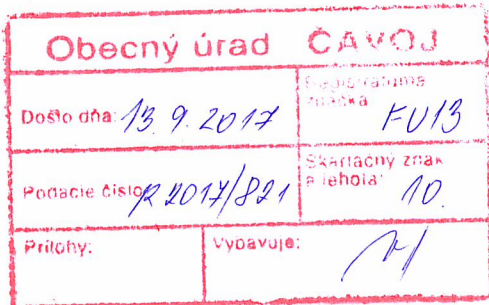 Obecný úrad ČAVOJ
Došlo dňa: 13. 9. 2017
Registratúrna
značka FU13
Podacie číslo R 2017/821
Skartačný znak
a lehota: 10.
Prílohy:
Vybavuje: